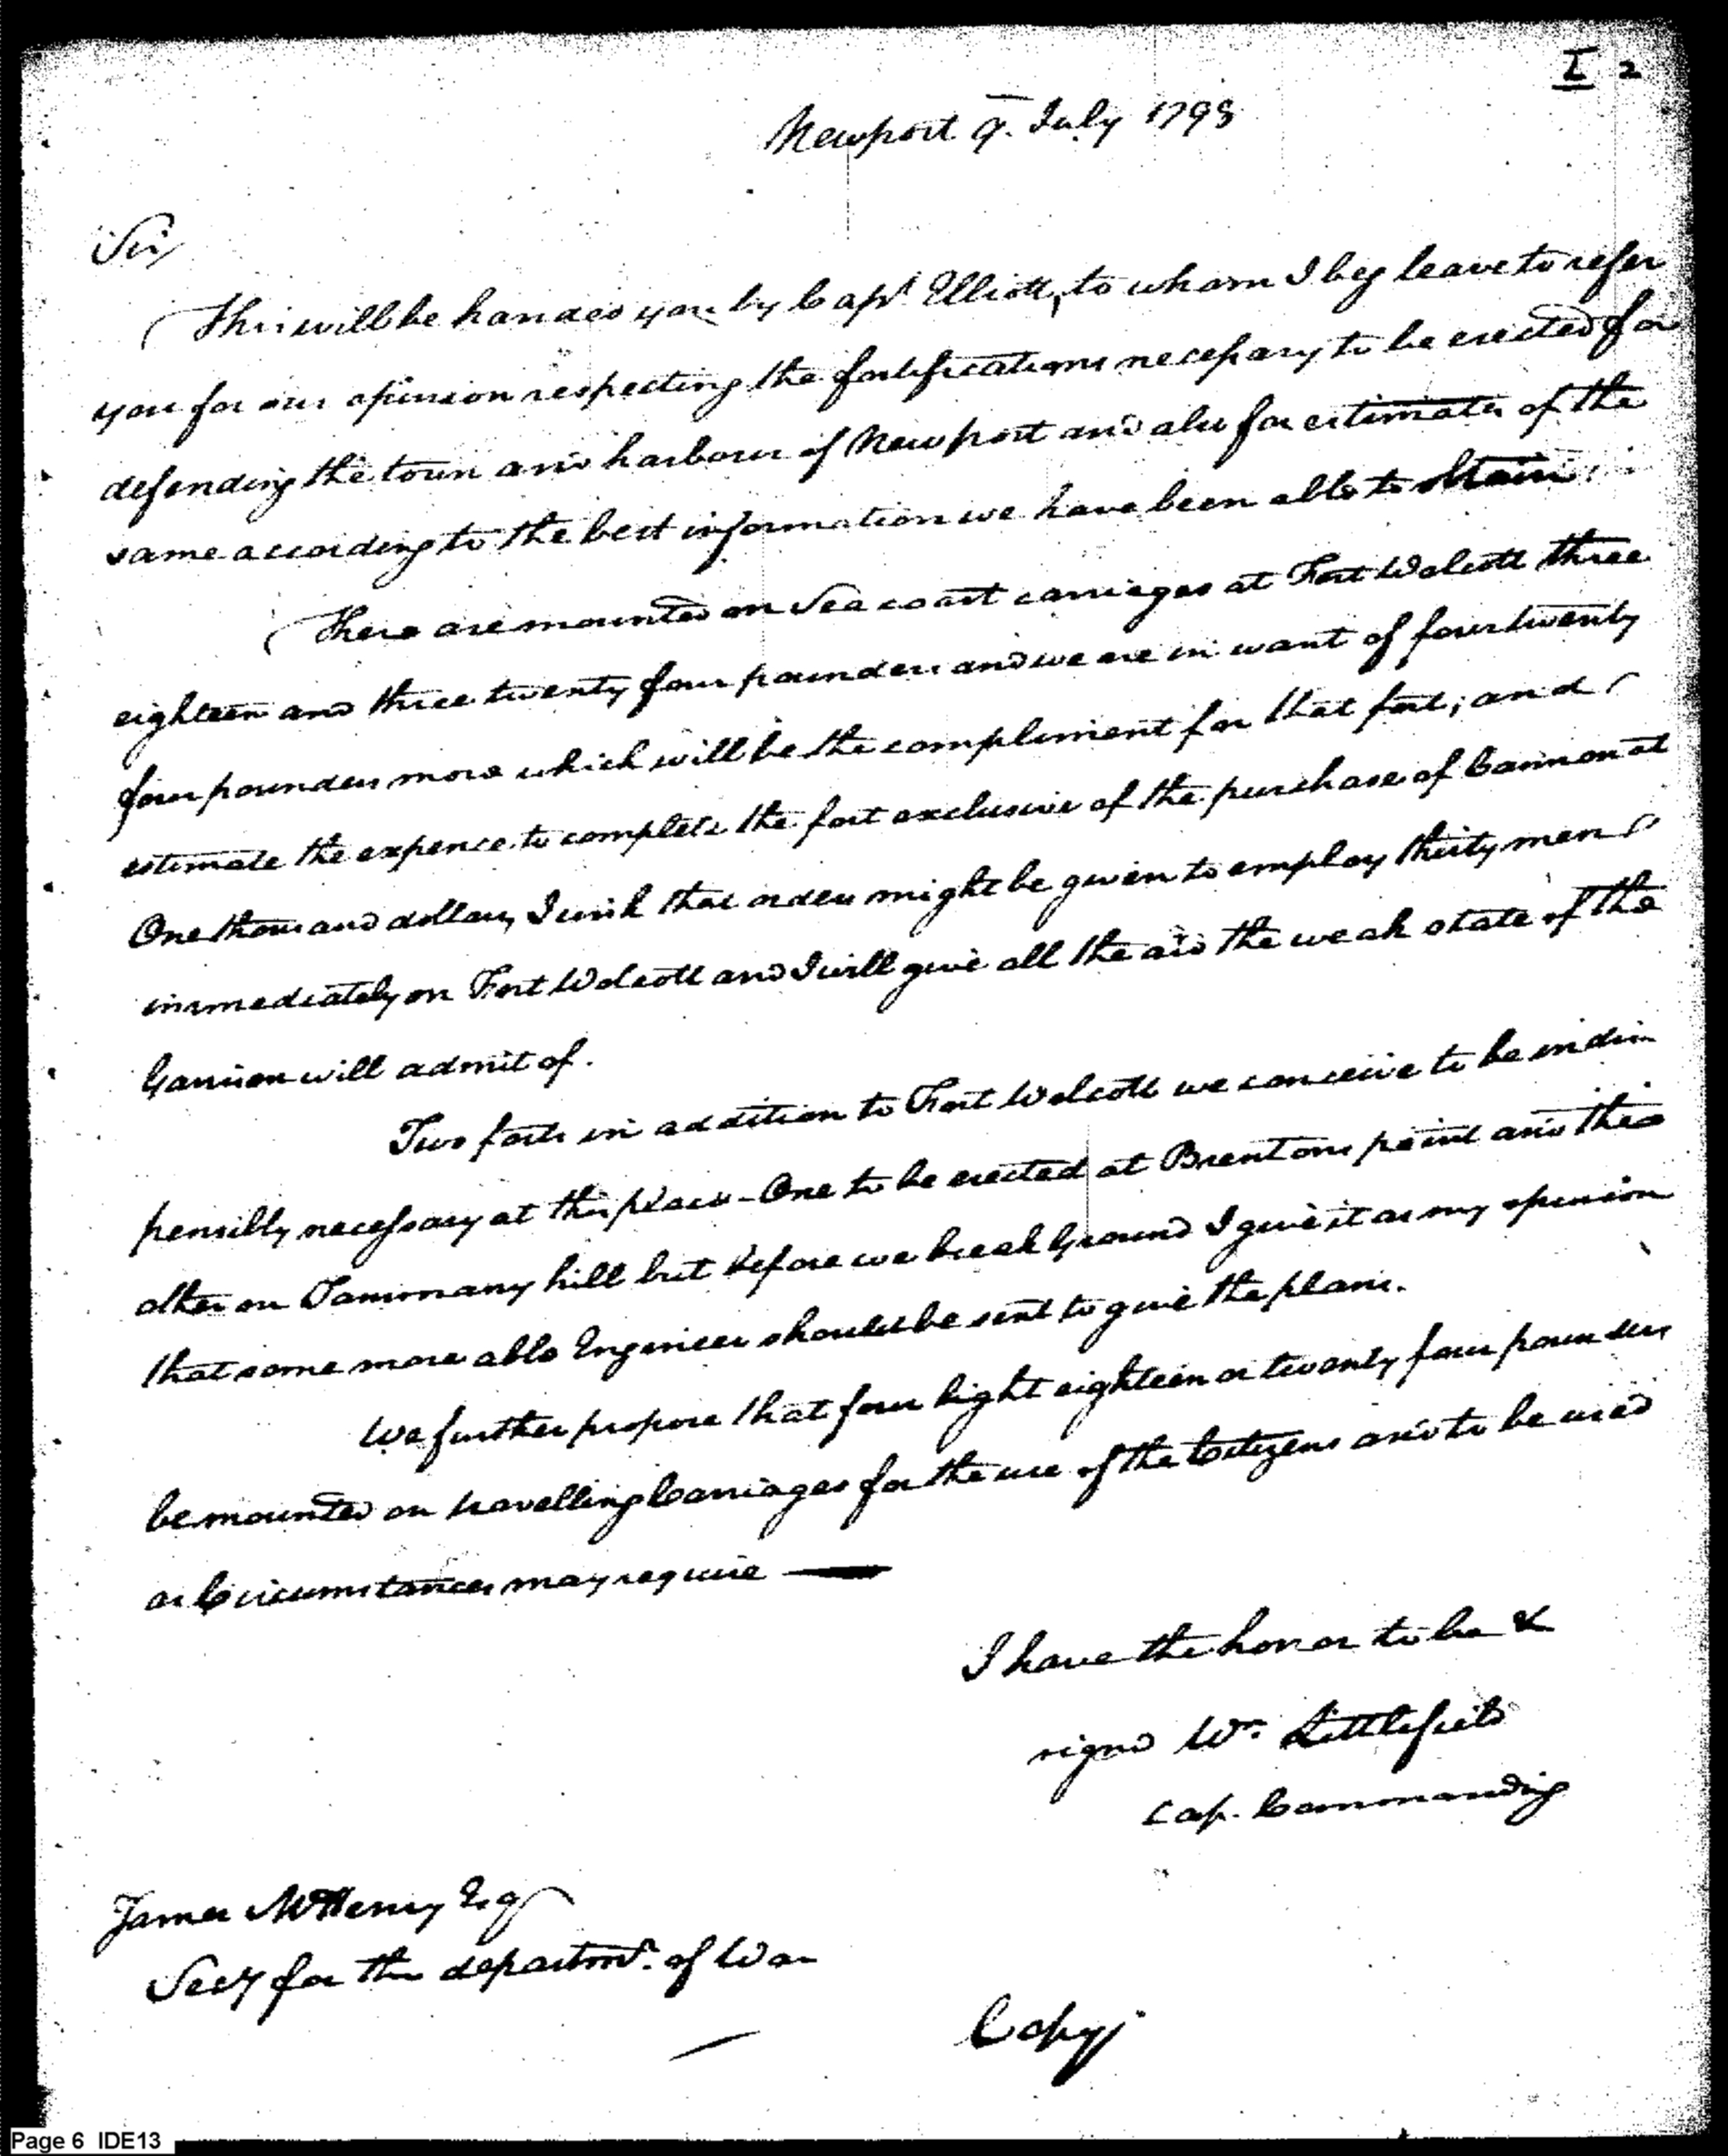 I 2
Newport 9. July 1798
Sir,
This will be handed you by Capt. Elliott, to whom I beg leave to refer
you for our opinion respecting the fortifications necessary to be erected for
defending the town and harbour of Newport and also for estimates of the
same according to the best information we have been able to obtain.
There are mounted on Sea coast carriages at Fort Wolcott three
eighteen and three twenty four pounders and we are in want of four twenty
four pounders more which will be the compliment for that fort; and
estimate the expence to complete the fort exclusive of the purchase of Cannon at
One thousand dollars, I wish that orders might be given to employ thirty men
immediately on Fort Wolcott and I will give all the aid the weak state of the
Garrison will admit of.
Two forts in addition to Fort Wolcott we conceive to be indis
pensibly necessary at this place - One to be erected at Brentons point and the
other on Tammany hill but before we break Ground I give it as my opinion
that some more able Engineer should be sent to give the plans.
We further propose that four light eighteen or twenty four pounders
be mounted on travelling Carriages for the use of the Citizens and to be used
as Circumstances may require —
I have the honor to be &
signd Wm. Littlefield
Cap. Commanding
James McHenry Esq
Secy for the departmt. of War
Copy
Page 6 IDE13